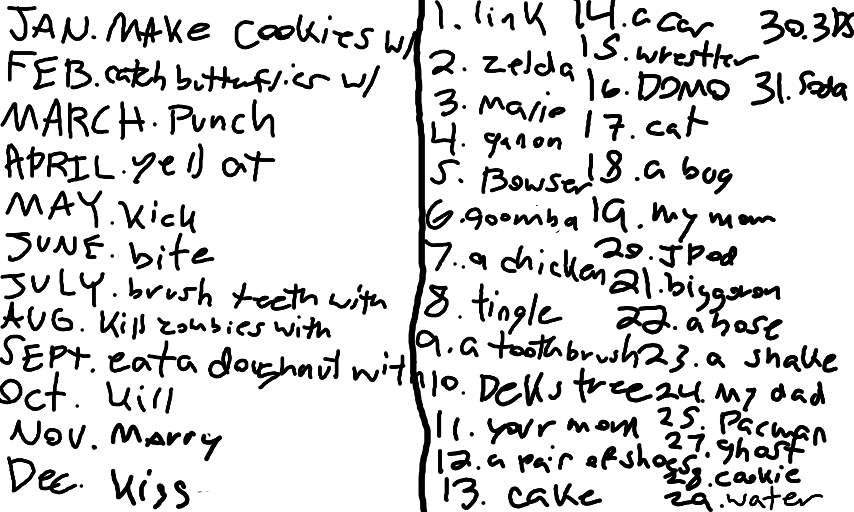 JAN. MAKE COOKIES W/
FEB. catch butterflies w/
MARCH. Punch
APRIL. yell at
MAY. Kick
JUNE. bite
JULY. brush teeth with
AUG. Kill zombies with
SEPT. eat a doughnut with
Oct. Kill
Nov. Marry
Dec. Kiss
1. link
2. zelda
3. Mario
4. ganon
5. Bowser
6. goomba
7. a chicken
8. tingle
9. a toothbrush
10. Deks tree
11. your mom
12. a pair of shoes
13. cake
14. a car
15. wrestler
16. DOMO
17. cat
18. a bug
19. my mom
20. IPod
21. biggoron
22. a hose
23. a snake
24. my dad
25. Pacman
27. ghost
28. cookie
29. water
30. 3DS
31. Soda